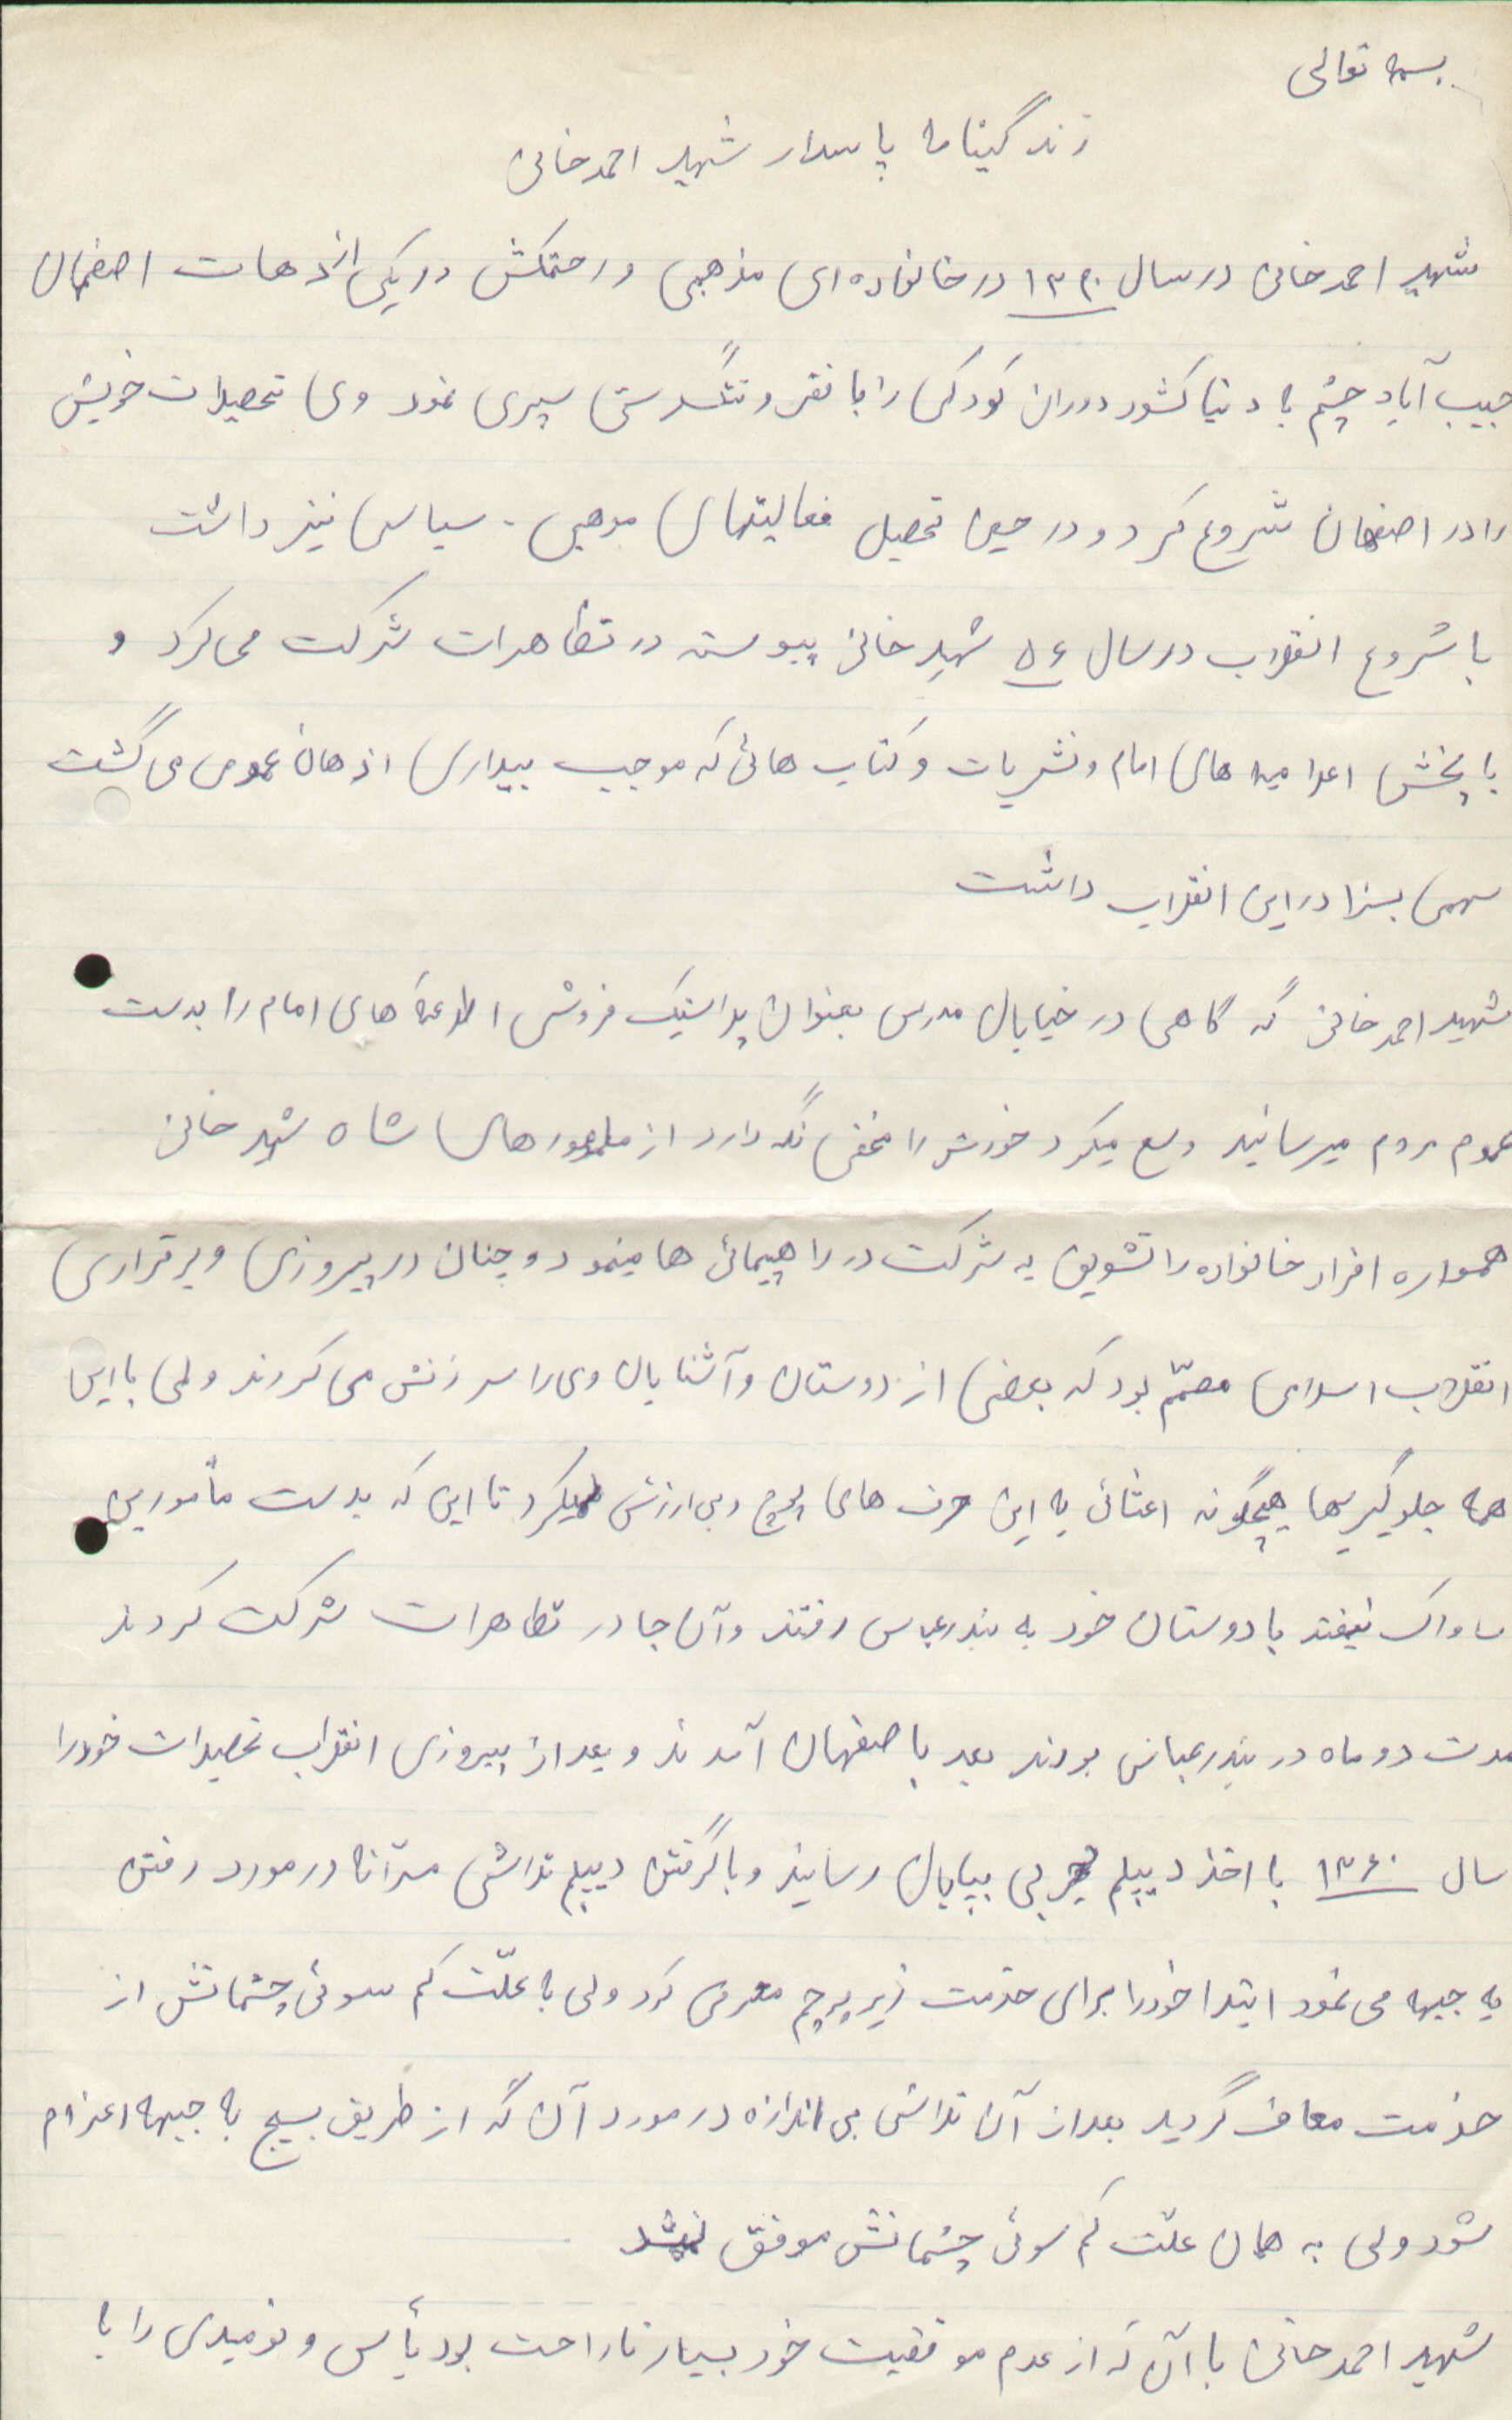 بسمه تعالی
زندگینامه پاسدار شهید احمد خانی
شهید احمد خانی در سال ۱۳۴۰ در خانواده ای مذهبی و زحمتکش در یکی از دهات اصفهان
حبیب آباد چشم به دنیا گشود دوران کودکی را با فقر و تنگدستی سپری نمود وی تحصیلات خویش
را در اصفهان شروع کرد و در حین تحصیل فعالیتهای مذهبی - سیاسی نیز داشت
با شروع انقلاب در سال ۵۶ شهید خانی پیوسته در تظاهرات شرکت می کرد و
با پخش اعلامیه های امام و نشریات و کتاب هائی که موجب بیداری اذهان عمومی می گشت
سهمی بسزا در این انقلاب داشت
شهید احمد خانی گه گاهی در خیابان مدرس بعنوان پلاستیک فروشی اطلاعیه های امام را بدست
عموم مردم میرسانید و سعی میکرد خودش را مخفی نگه دارد از مامورهای شاه شهید خانی
همواره افراد خانواده را تشویق به شرکت در راهپیمائی ها مینمود و چنان در پیروزی و برقراری
انقلاب اسلامی مصمّم بود که بعضی از دوستان و آشنایان وی را سرزنش می کردند ولی با این
همه جلوگیریها هیچگونه اعتنائی به این حرف های پوچ و بی ارزش نمیکرد تا این که بدست مأمورین
ساواک نیفتد با دوستان خود به بندرعباس رفتند و آن جا در تظاهرات شرکت کردند
مدت دو ماه در بندرعباس بودند بعد باصفهان آمدند و بعد از پیروزی انقلاب تحصیلات خود را
سال ۱۳۶۰ با اخذ دیپلم تجربی بپایان رسانید و با گرفتن دیپلم تلاشی مسرّانه در مورد رفتن
به جبهه می نمود ابتدا خود را برای خدمت زیر پرچم معرفی کرد ولی به علّت کم سوئی چشمانش از
خدمت معاف گردید بعد از آن تلاشی بی اندازه در مورد آن که از طریق بسیج به جبهه اعزام
شود ولی به همان علّت کم سوئی چشمانش موفق نشد
شهید احمد خانی با آن که از عدم موفقیت خود بسیار ناراحت بود یأس و نومیدی را با